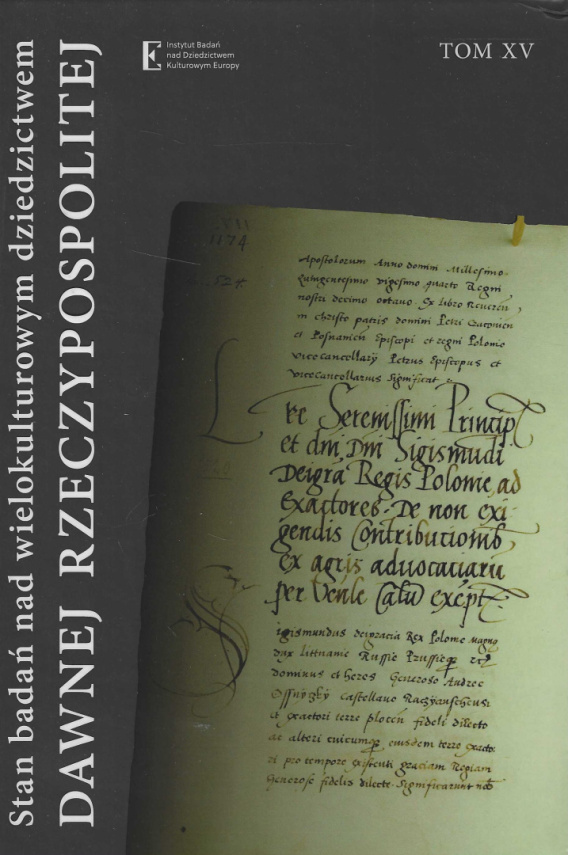 Stan badań nad wielokulturowym dziedzictwem
DAWNEJ RZECZYPOSPOLITEJ
Instytut Badań
nad Dziedzictwem
Kulturowym Europy
TOM XV
1174
Apostolorum Anno domini Millesimo
quingentesimo vigesimo quarto Regni
nostri decimo octavo. Ex libro Reveren
in christo patris domini Petri
et Posnanien Episcopi et regni Polonie
vicecancellarij Petrus Episcopus et
vicecancellarius significat
Lre Serenissimi Princip
et dni, Dni Sigismudi
Deigra Regis Polonie ad
exactores. De non exi-
gendis Contributionib
ex agris advocatiaru
per exept.
Sigismundus deigracia Rex Polonie magnus
dux littuanie Russie Prussieq
dominus et heres Generoso Andree
castellano
et exactori terre plocen fideli dilecto
ac alteri cuicumq eiusdem terre exacto
ri pro tempore existenti graciam Regiam
Generose fidelis dilecte. Significarunt nob